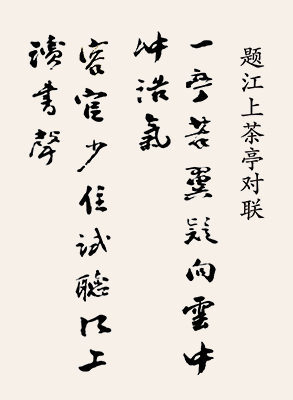 题江上茶亭对联
一亭若翼疑向雲中
冲浩氣
客官少住試聽江上
讀書聲